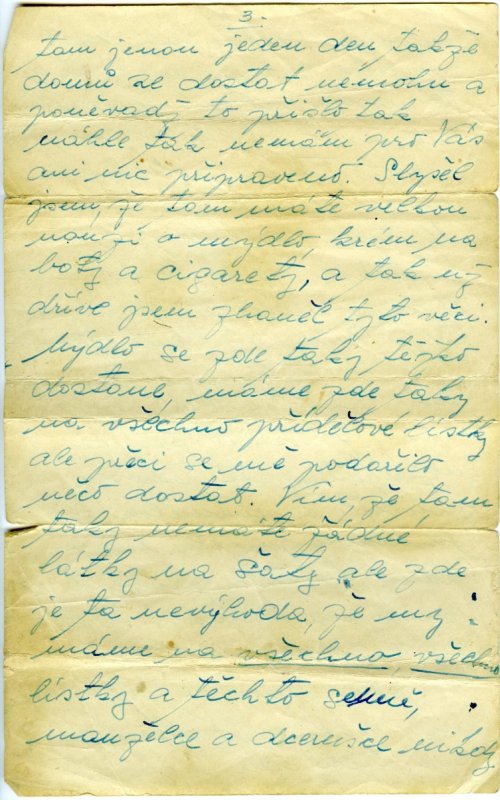 3.
tam jenom jeden den, takže
domů se dostat nemohu a
poněvadž to přišlo tak
náhle tak nemám pro Vás
ani nic připraveno. Slyšel
jsem, že tam máte velkou
nouzi o mýdlo, krém na
boty a cigarety, a tak již
dříve jsem sháněl tyto věci.
Mýdlo se zde taky těžko
dostane, máme zde taky
na všechno přídělové lístky
ale přeci se mě podařilo
něco dostat. Vím, že tam
taky nemáte žádné
látky na šaty, ale zde
je ta nevýhoda, že my
máme na všechno, všechno
lístky a těchto se mě,
manželce a dcerušce nikdy